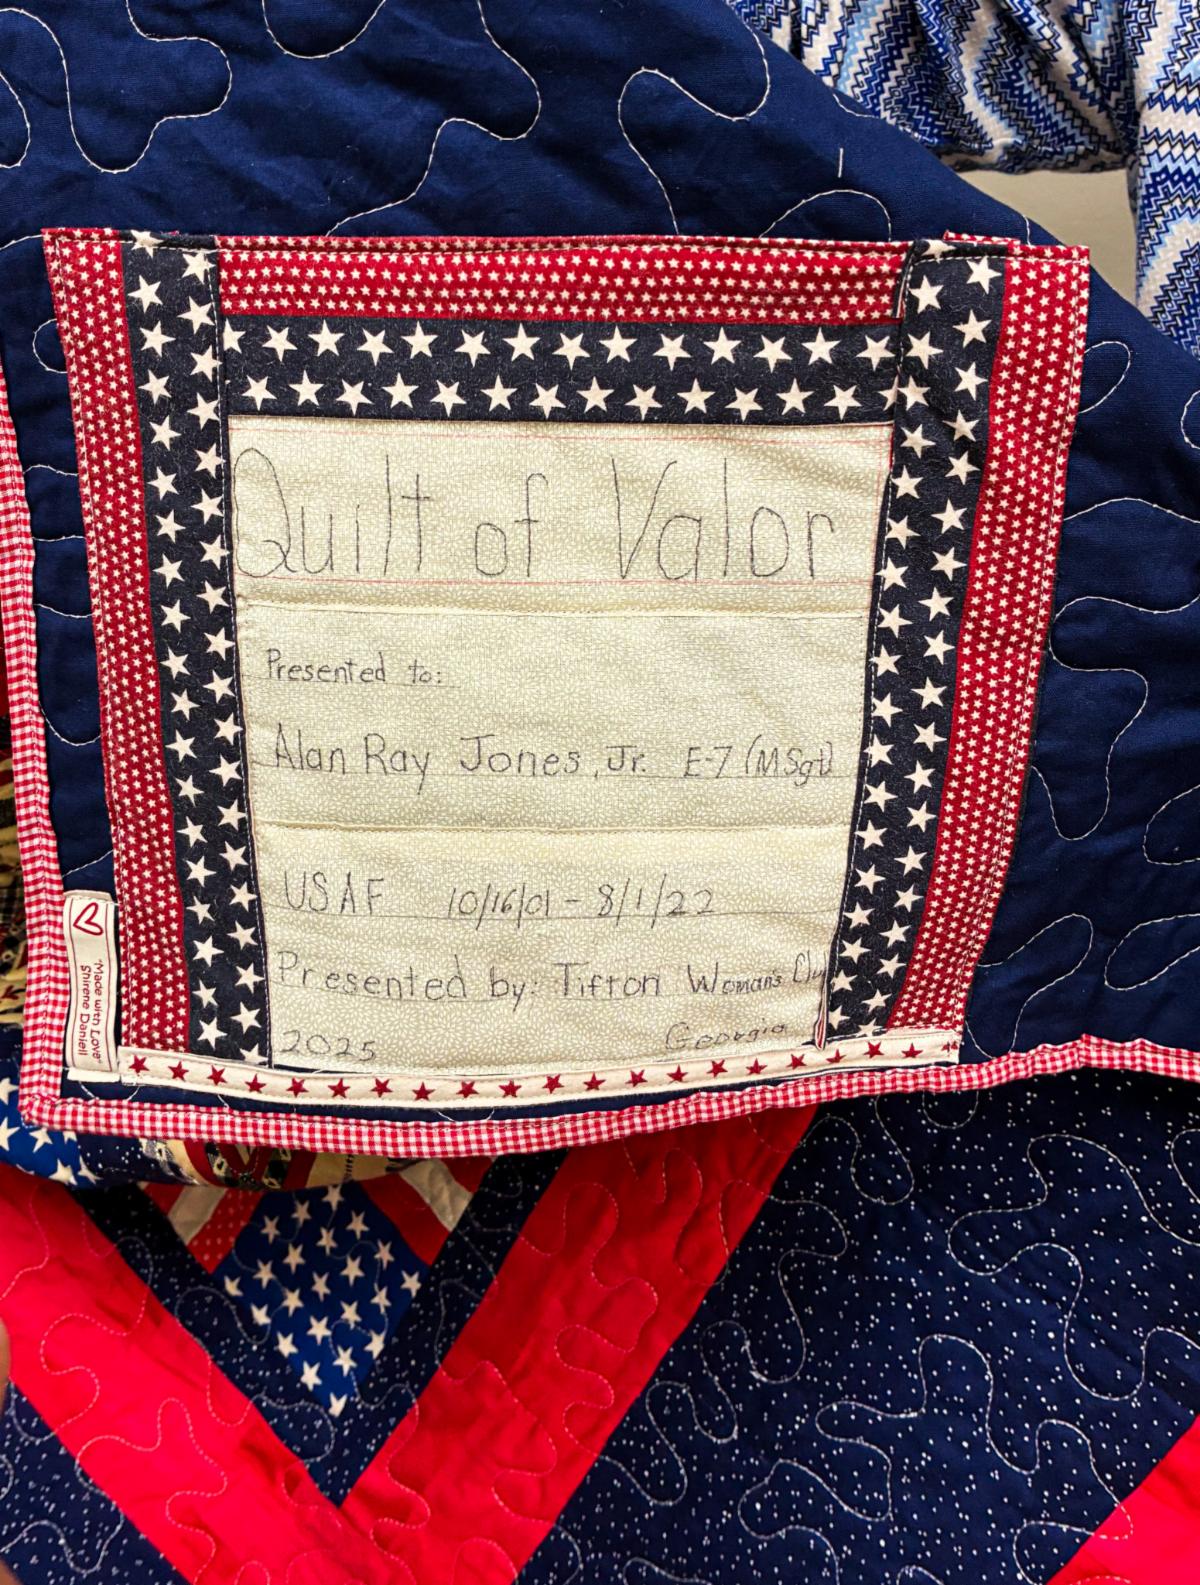 Quilt of Valor
Presented to:
Alan Ray Jones, Jr. E-7 (MSgt)
USAF 10/16/01 - 8/1/22
Presented by: Tifton Woman's Clu
2025 Georgia
"Made with Love"
Shirene Daniell